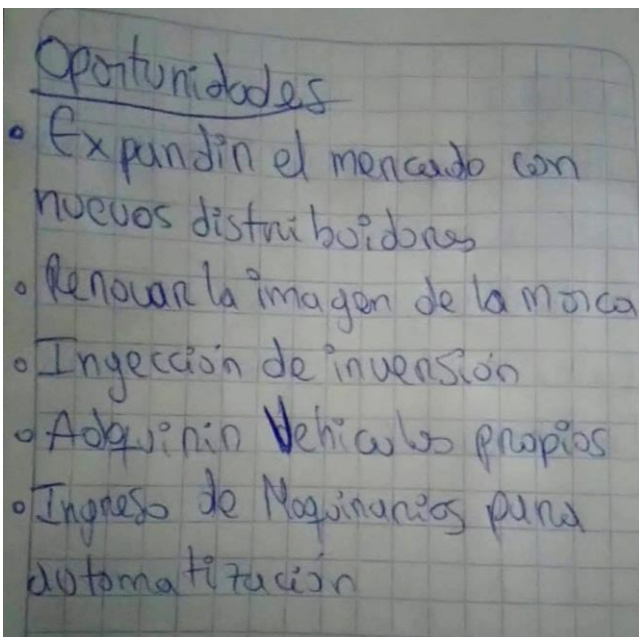 Oportunidades
• Expandir el mercado con
nuevos distribuidores
• Renovar la imagen de la marca
• Ingección de inversión
• Adquirir Vehiculos propios
• Ingreso de Maquinarias para
automatización